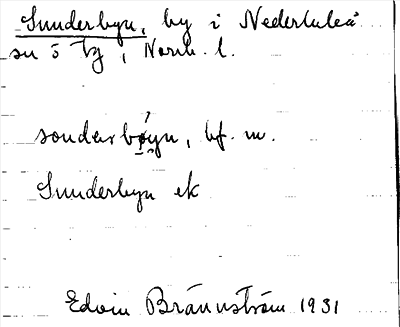 Sunderbyn, by i Nederluleå
sn o tg, Norrb. l.
sondərbøyn, bf. m.
Sunderbyn ek
Edvin Brännström 1931